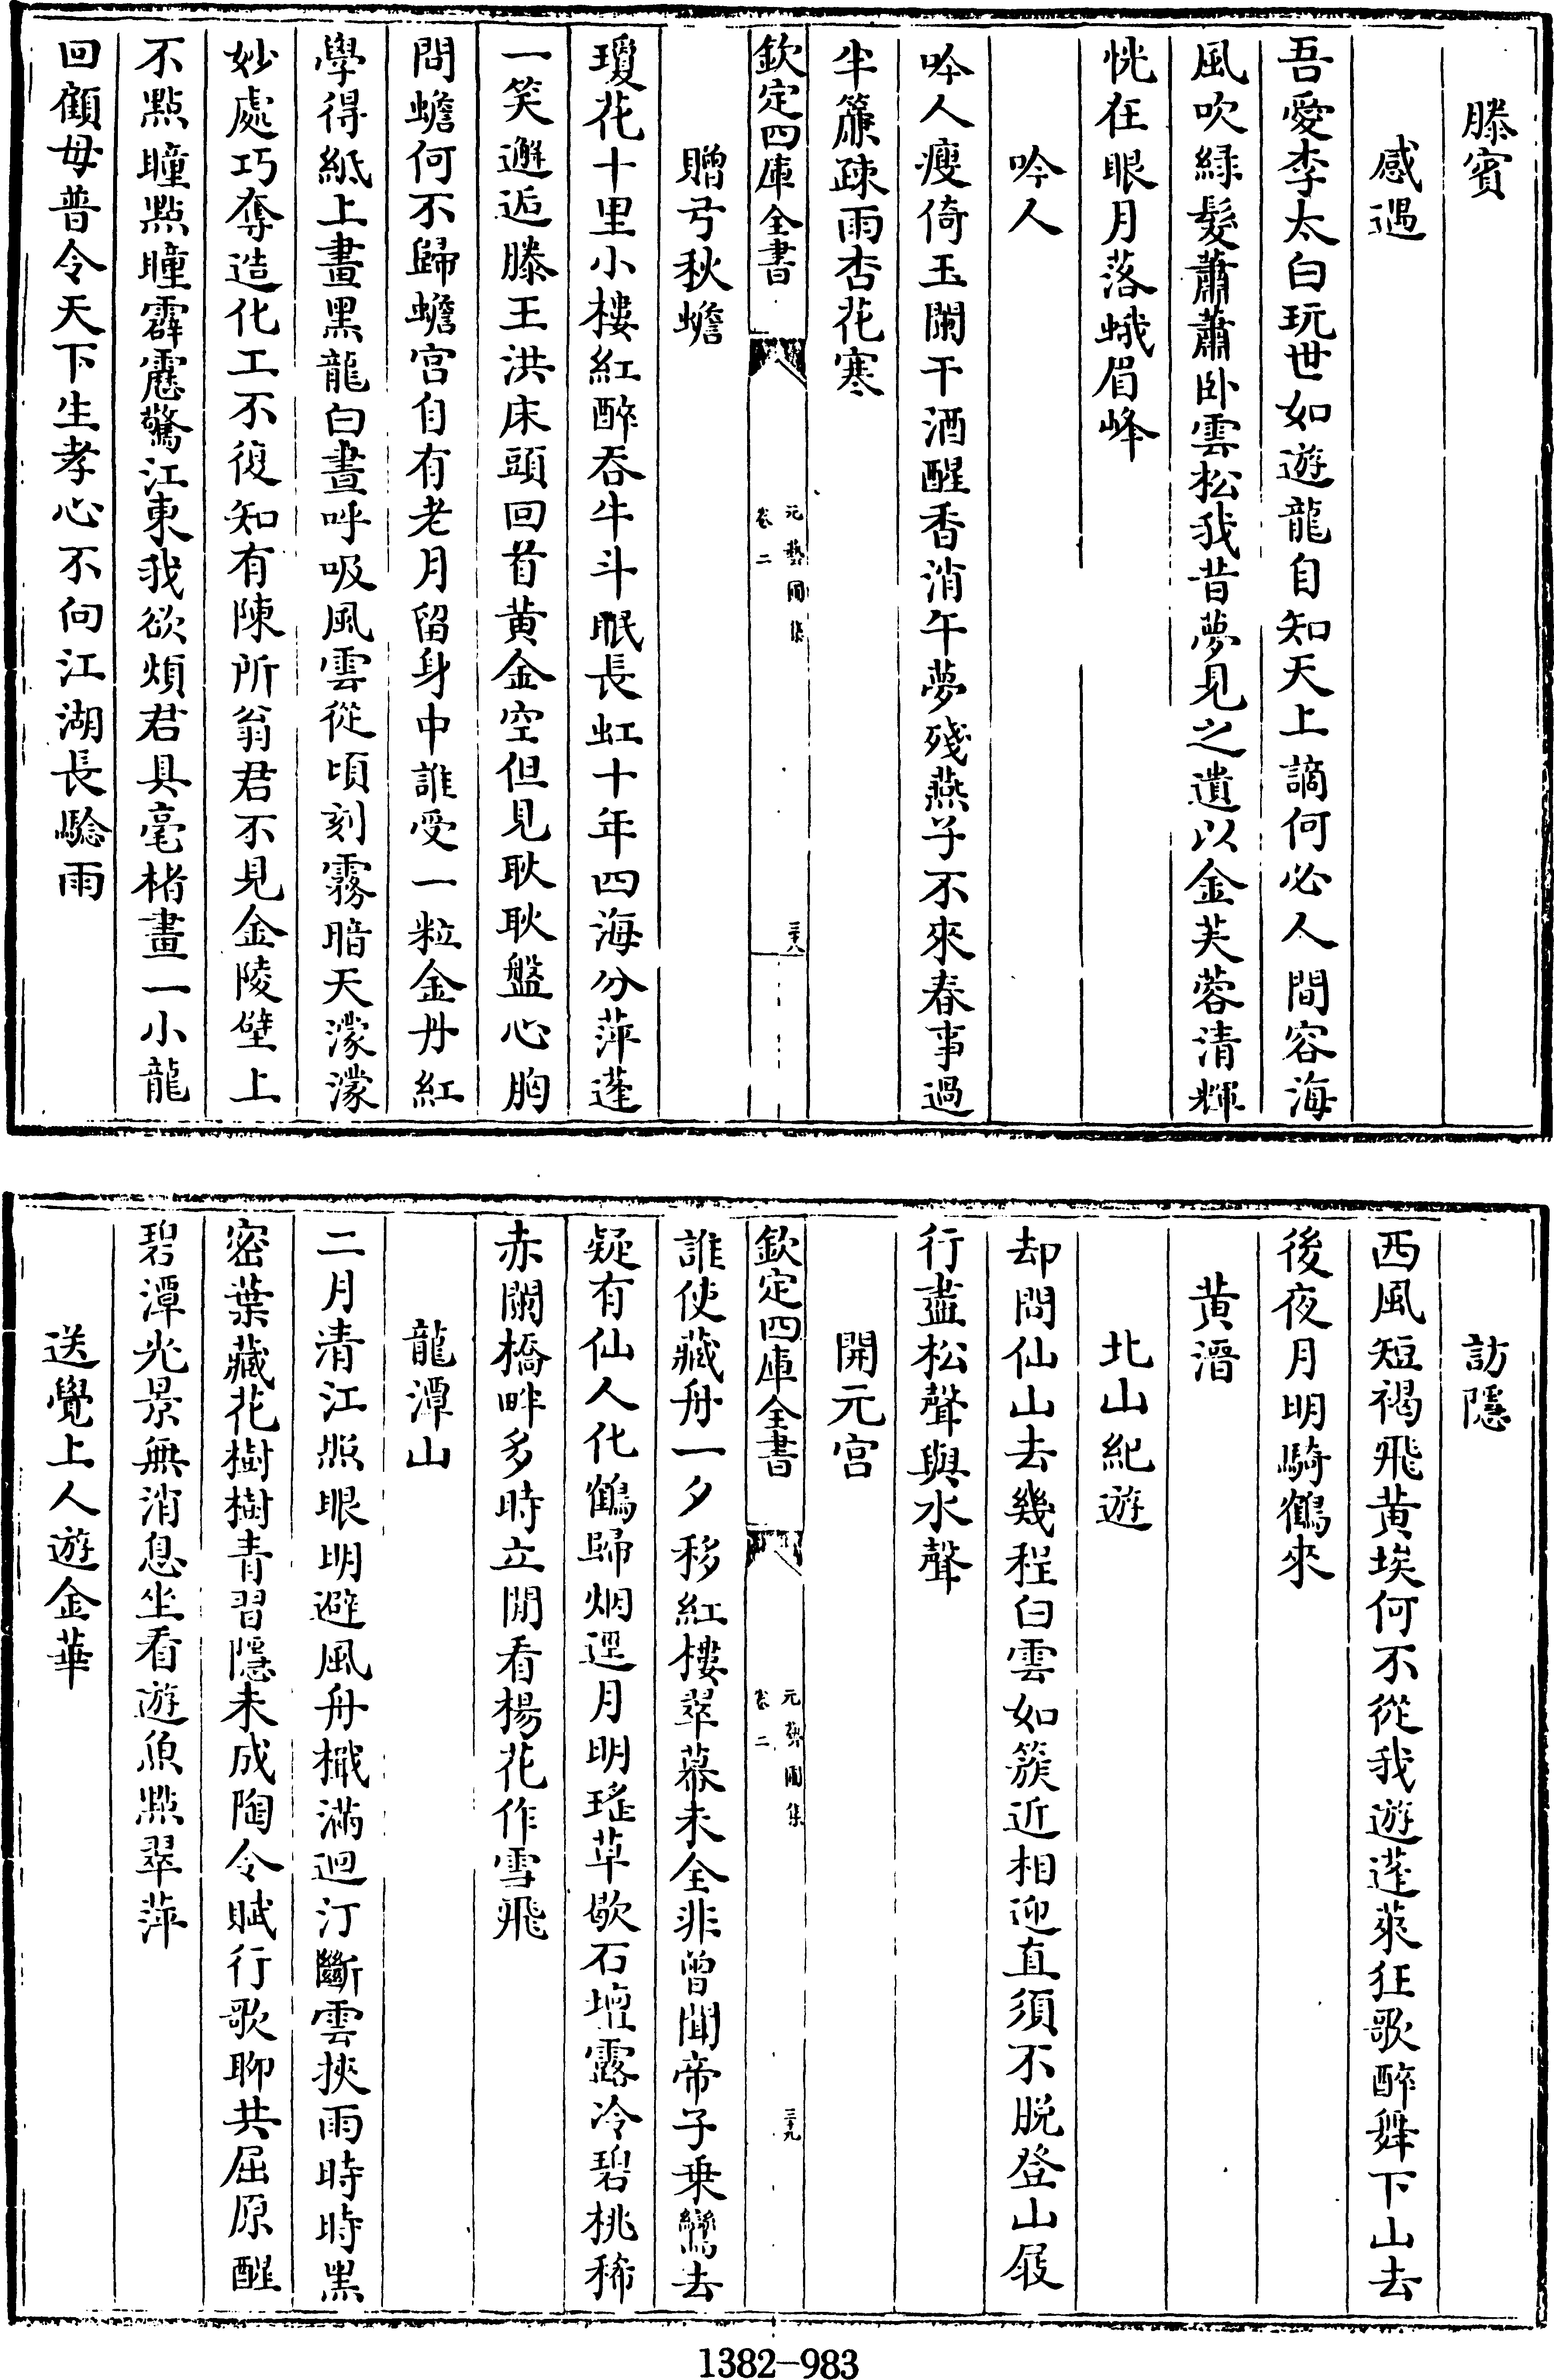 滕賓
感遇
吾愛李太白玩世如遊龍自知天上謫何必人間容海
風吹緑髮蕭蕭卧雲松我昔夢見之遺以金芙蓉清輝
恍在眼月落蛾眉峰
吟人
吟人瘦倚玉闌干酒醒香消午夢殘燕子不來春事過
半簾疎雨杏花寒
欽定四庫全書
元藝圃集
卷二
三十八
贈弓秋蟾
瓊花十里小樓紅醉吞牛斗眠長虹十年四海分萍蓬
一笑邂逅滕王洪床頭回首黄金空但見耿耿盤心胸
問蟾何不歸蟾宫自有老月留身中誰受一粒金丹紅
學得紙上畫黑龍白晝呼吸風雲從頃刻霧暗天濛濛
妙處巧奪造化工不復知有陳所翁君不見金陵壁上
不點瞳點瞳霹靂驚江東我欲煩君具毫楮畫一小龍
回顧母普令天下生孝心不向江湖長驗雨
訪隱
西風短褐飛黄埃何不從我遊蓬萊狂歌醉舞下山去
後夜月明騎鶴來
黄溍
北山紀遊
却問仙山去幾程白雲如簇近相迎直須不脱登山屐
行盡松聲與水聲
開元宫
欽定四庫全書
元藝圃集
卷二
三十九
誰使藏舟一夕移紅樓翠幕未全非曾聞帝子乗鸞去
疑有仙人化鶴歸烟逕月明瑤草歇石壇露冷碧桃稀
赤闌橋畔多時立閒看楊花作雪飛
龍潭山
二月清江照眼明避風舟檝滿迴汀斷雲挾雨時時黑
密葉藏花樹樹青習隱未成陶令賦行歌聊共屈原醒
碧潭光景無消息坐看遊魚㸃翠萍
送覺上人遊金華
1382-983